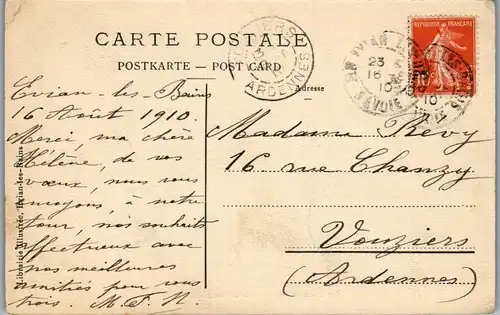 CARTE POSTALE
POSTKARTE — POST CARD
Adresse
RÉPUBLIQUE FRANÇAISE
VOUZIERS
ARDENNES
EVIAN-LES-BAINS
23
16
10
SAVOIE
Evian les Bains
16 Août 1910.
Merci, ma chère
Hélène, de vos
vœux, nous vous
envoyons, à notre
tour, nos souhaits
affectueux avec
nos meilleures
amitiés pour vous
trois. M. F. N.
Madame Revy
16 rue Chanzy
Vouziers
(Ardennes)
Librairie Illustrée, Evian-les-Bains